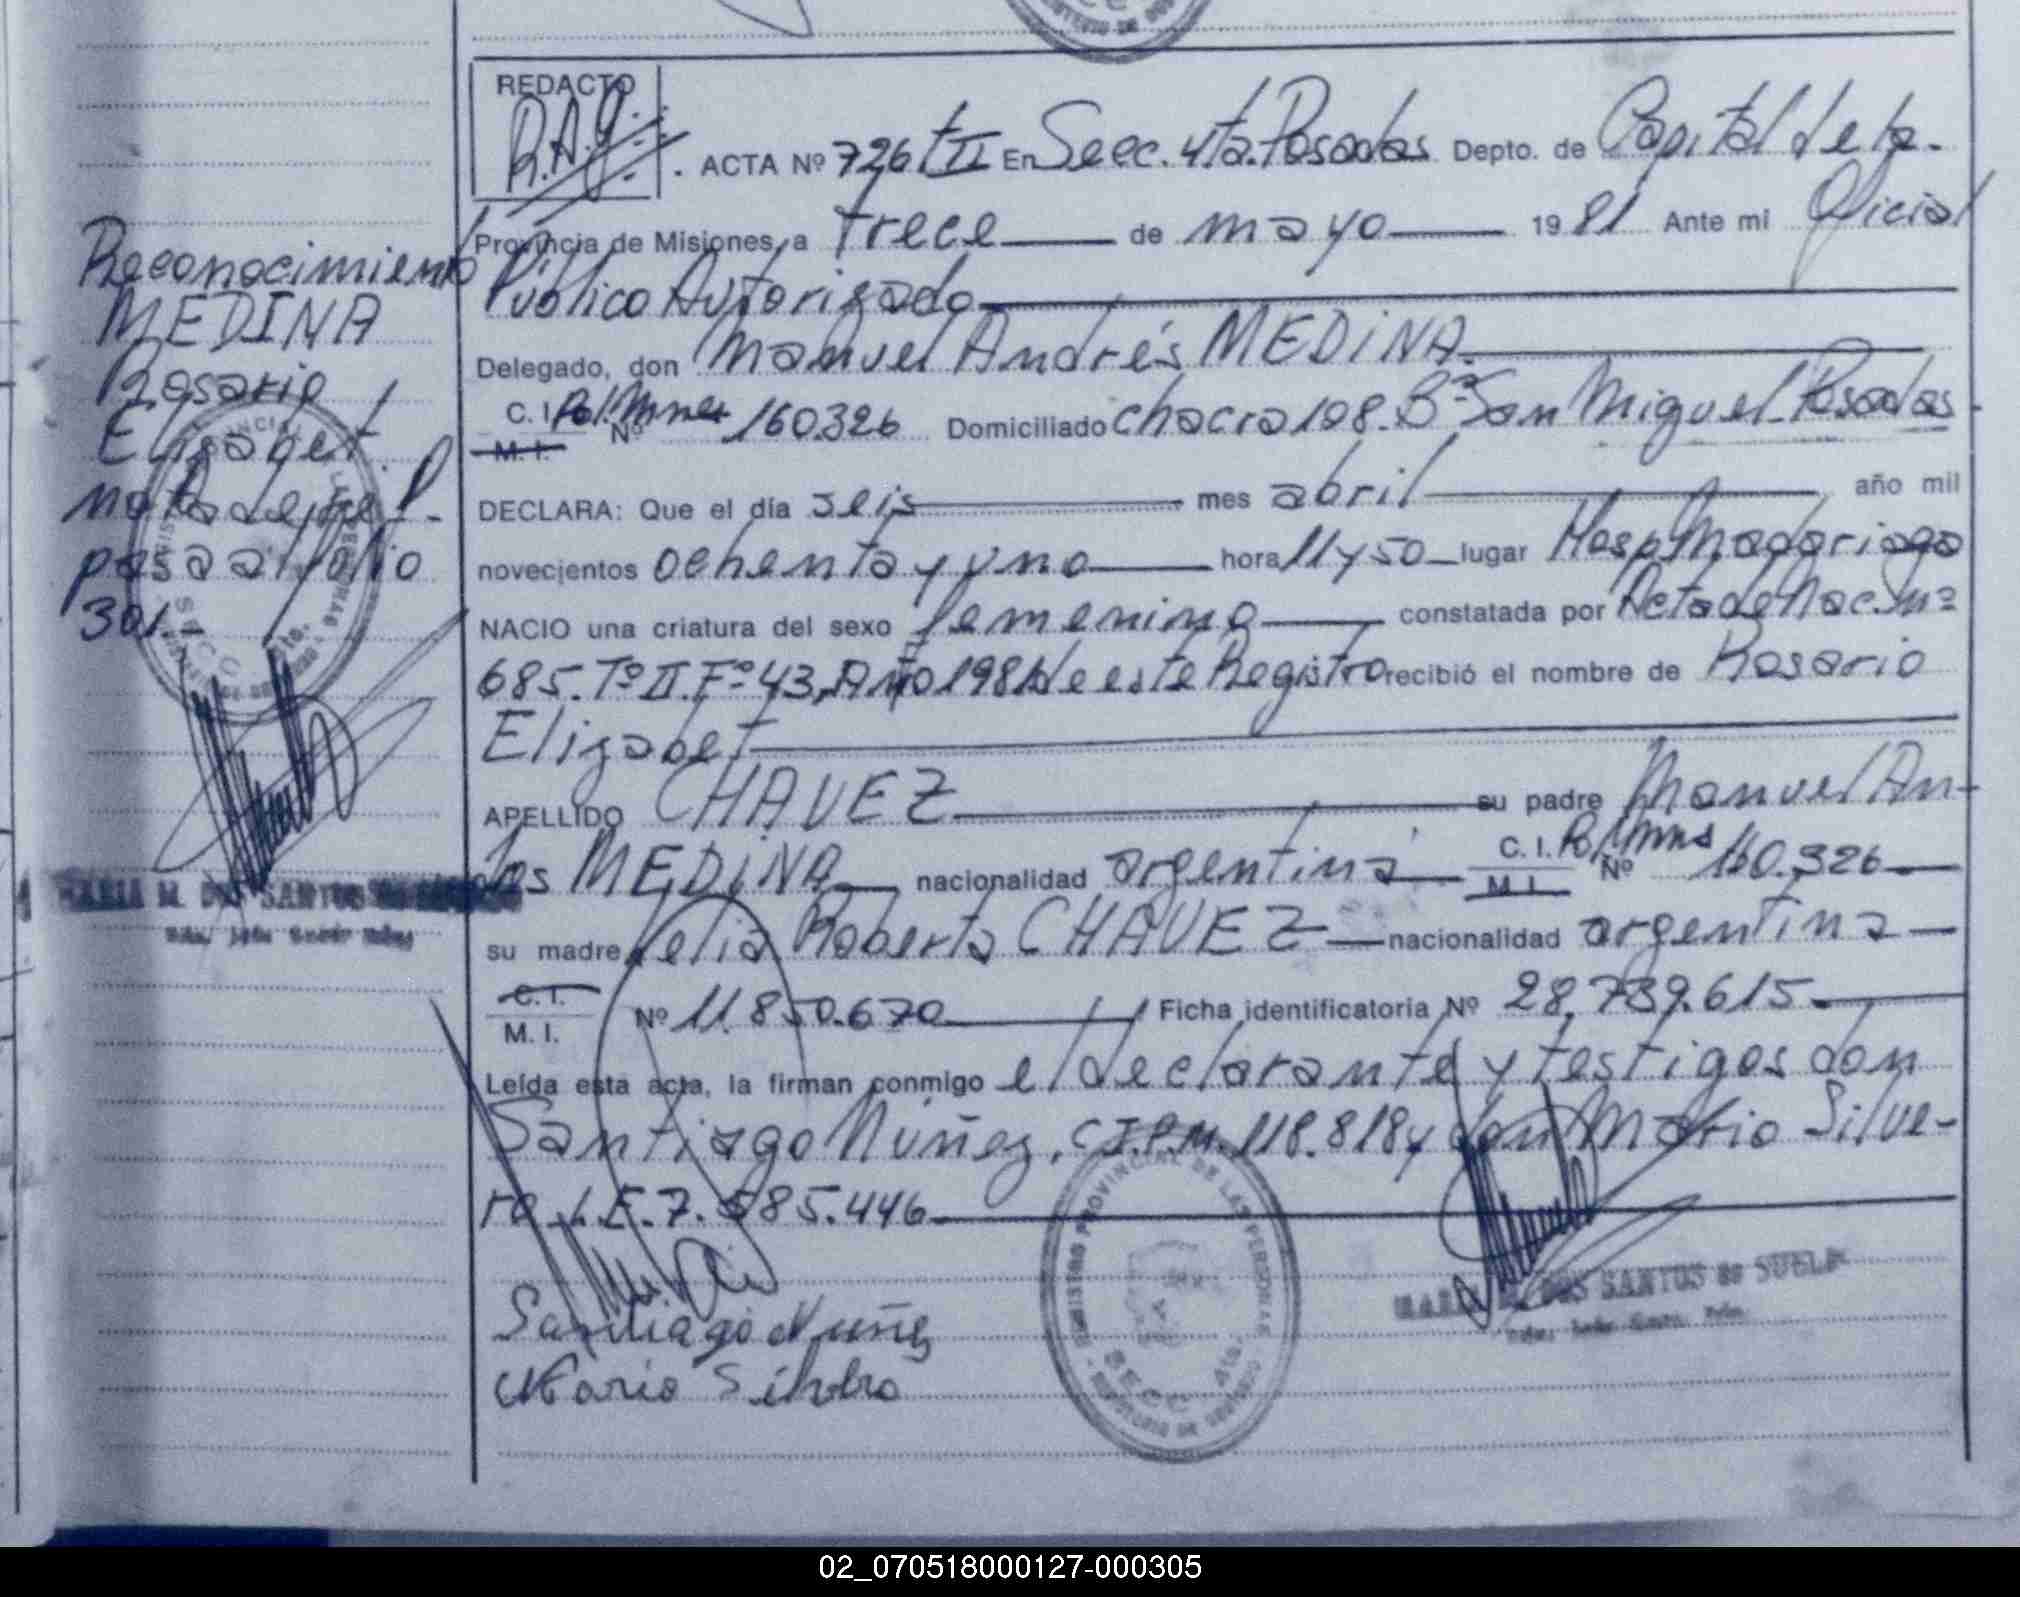 REDACTO
R.A.G.
ACTA Nº 726 tII En Secc. 4ta. Posadas Depto. de Capital de la
Provincia de Misiones, a trece de mayo 1981 Ante mi Oficial
Público Autorizado
Delegado, don Manuel Andrés MEDINA.
C. I. Pol. Mnes Nº 160326 Domiciliado chacra 108. Bº San Miguel-Posadas
M. I.
DECLARA: Que el día seis mes abril año mil
novecientos ochenta y uno hora 11 y 50 lugar Hosp. Madariaga
NACIO una criatura del sexo femenino constatada por Acta de Nac. Nº
685. Tº II. Fº 43, Año 1981 de este Registro recibió el nombre de Rosario
Elizabet
APELLIDO CHAVEZ su padre Manuel An-
MEDINA nacionalidad argentina C. I. Pol. Mnes Nº 160.326
M. I.
su madre Roberta CHAVEZ nacionalidad argentina
C. I.
M. I.
Nº 11.850.670 Ficha identificatoria Nº 28.739.615.
Leída esta acta, la firman conmigo el declarante y testigos don
Santiago Núñez, C.I.P.M. 118.818 y don Mario Silve-
ro L.E. 7.585.446
Santiago Nuñez
Mario Silvero
REGISTRO PROVINCIAL DE LAS PERSONAS
SECC. 4ta.
MARIA M. DOS SANTOS de SUELA
Reconocimiento
MEDINA
Rosario
Elisabet.
nota de ref.
pasa al folio
301.-
MARIA M. DOS SANTOS
02_070518000127-000305